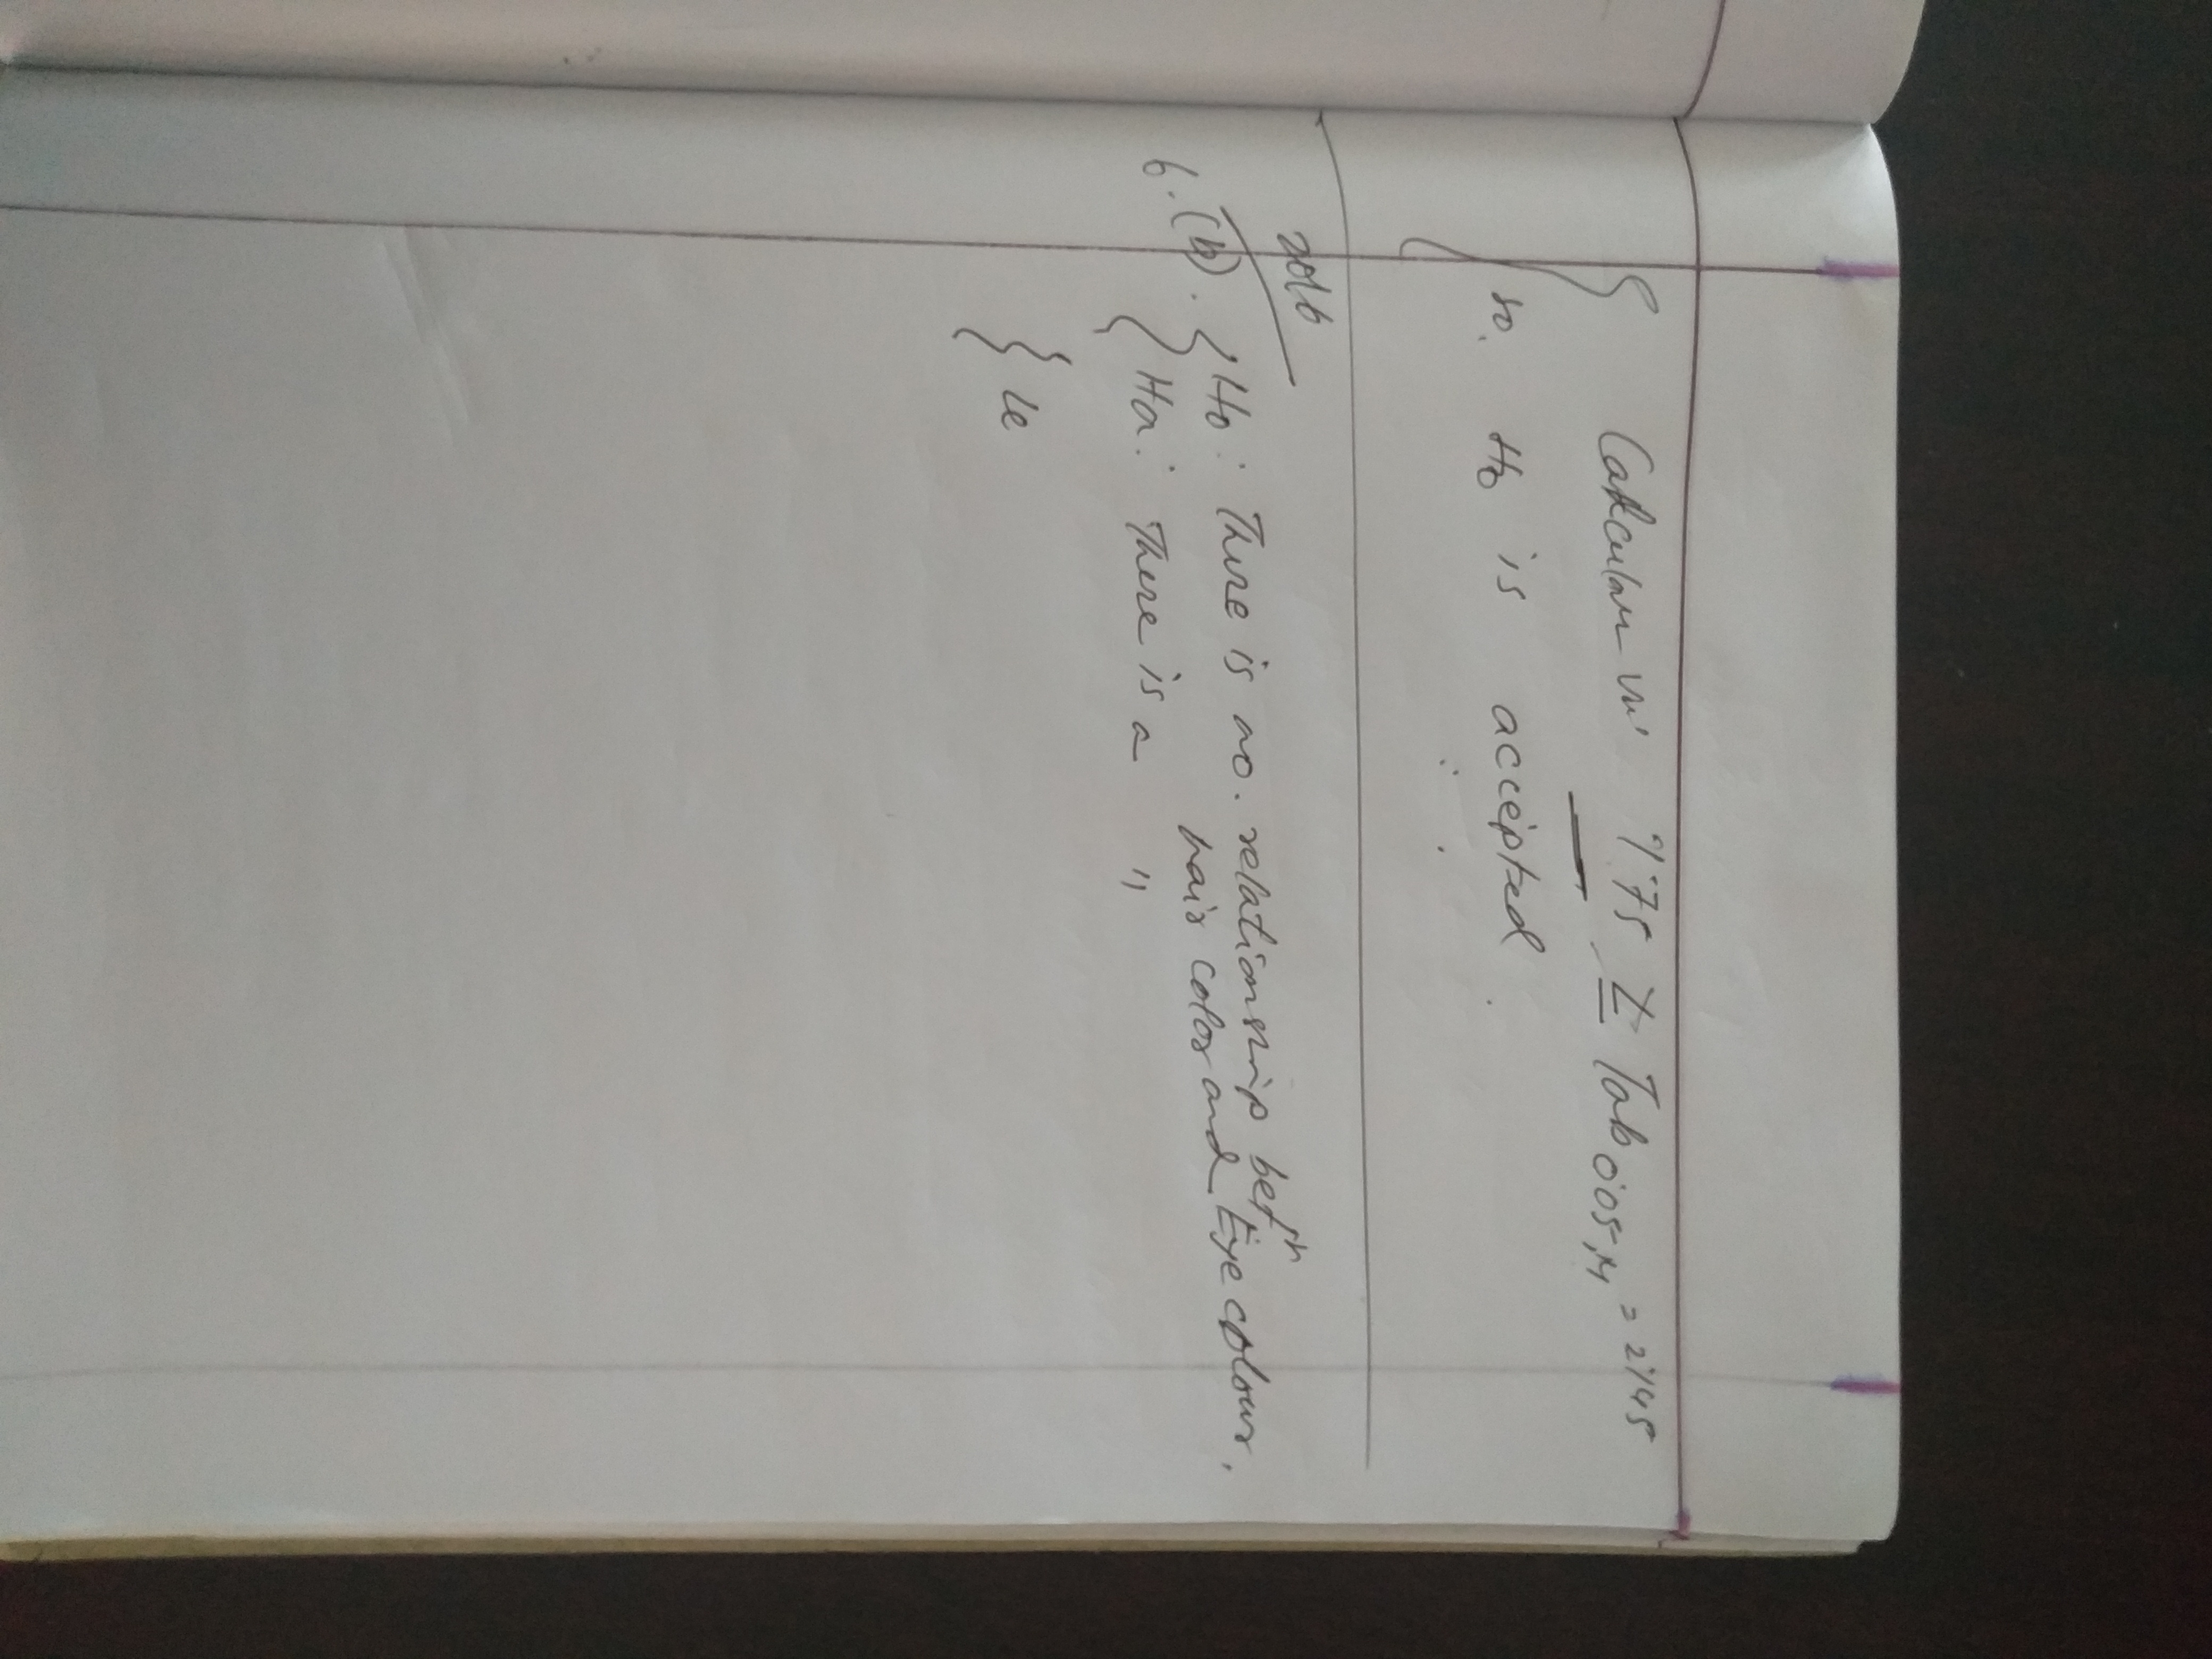 Calculam val 1.75 ≱ Tab 0.05,14 = 2.145
so. H0 is accepted.
2016
6. (b). H0: There is no. relationship betn
hair color and Eye colour.
Ha: There is a "
Le